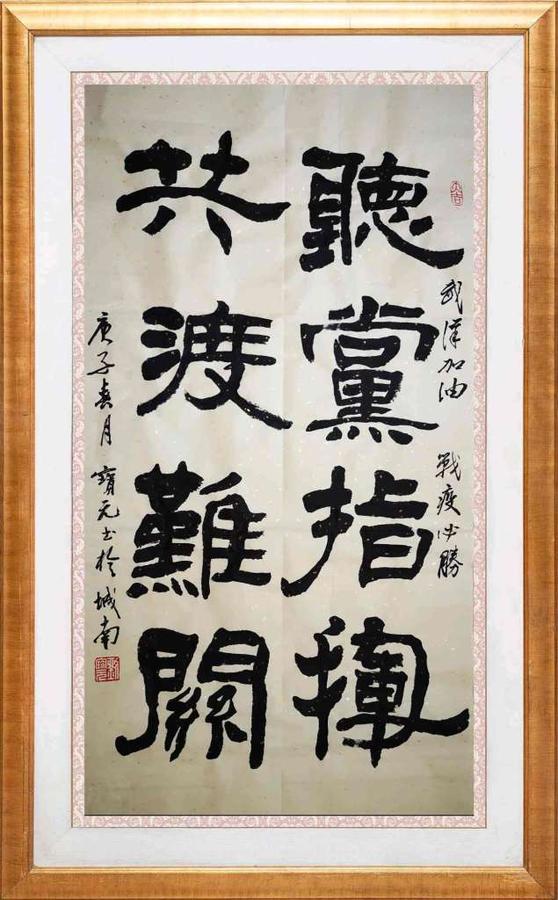 武漢加油 戰疫必勝
聽黨指揮
共渡難關
庚子春月 寶元书於城南